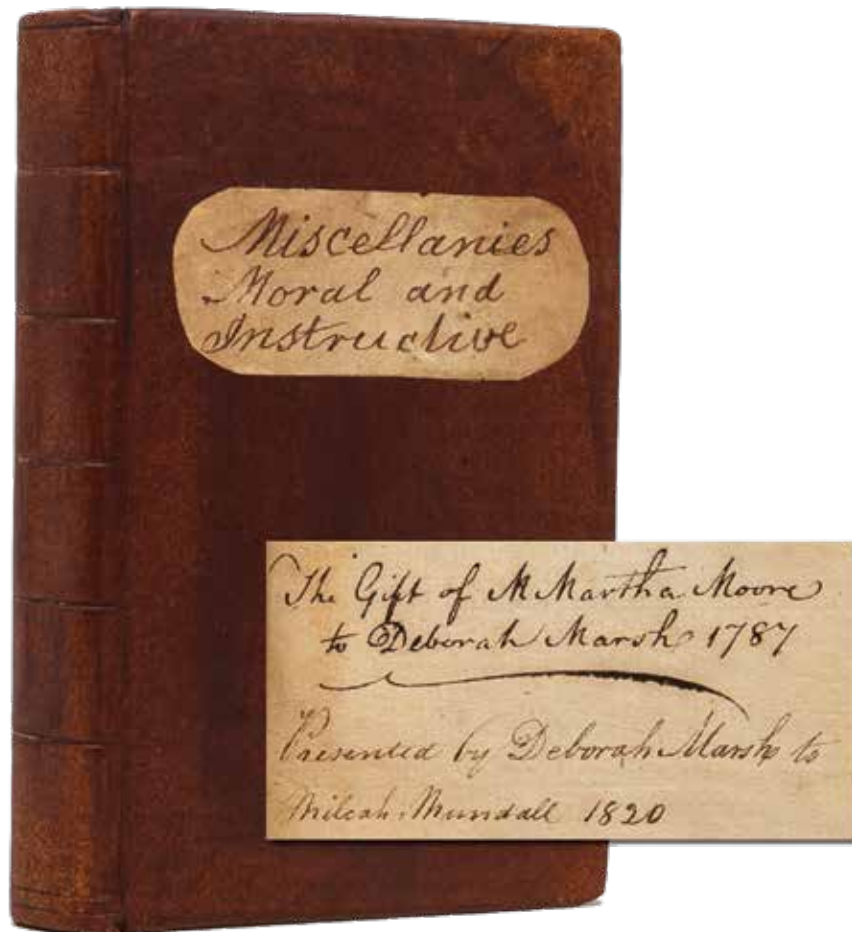 Miscellanies
Moral and
Instructive
The Gift of M Martha Moore
to Deborah Marsh 1787
Presented by Deborah Marsh to
Milcah Mundall 1820